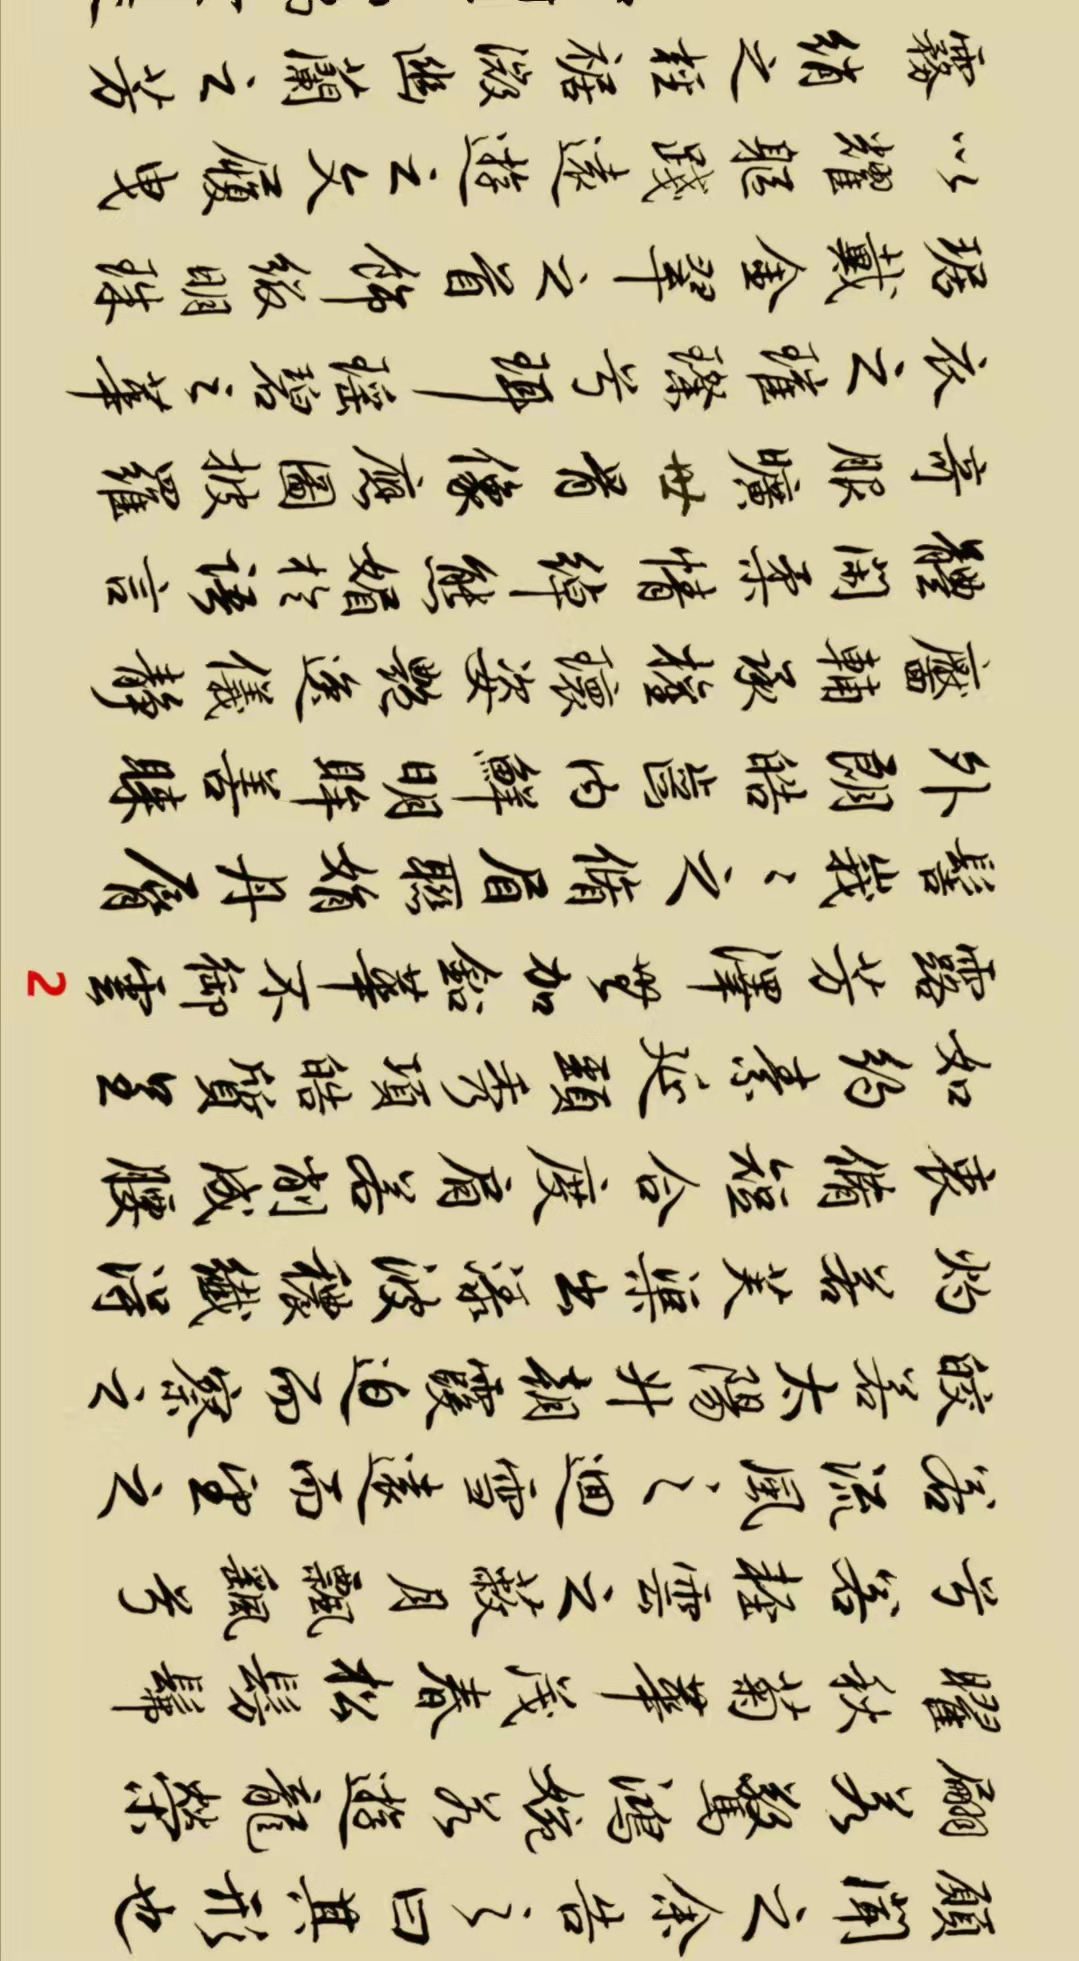 願聞之余告之曰其形也
翩若驚鴻婉若遊龍榮
曜秋菊華茂春松髣髴
兮若輕雲之蔽月飄颻兮
若流風之迴雪遠而望之
皎若太陽升朝霞迫而察之
灼若芙渠出淥波穠纖得
衷脩短合度肩若削成腰
如約素延頸秀項皓質呈
露芳澤無加鉛華不御雲
髻峩〻之脩眉聯娟丹脣
外朗皓齒內鮮明眸善睞
靨輔承權瓌姿艷逸儀靜
體閑柔情綽態媚於語言
奇服曠世骨像應圖披羅
衣之璀璨兮珥瑤碧之華
琚戴金翠之首飾綴明珠
以耀軀踐遠遊之文履曳
霧綃之輕裾微幽蘭之芳
2